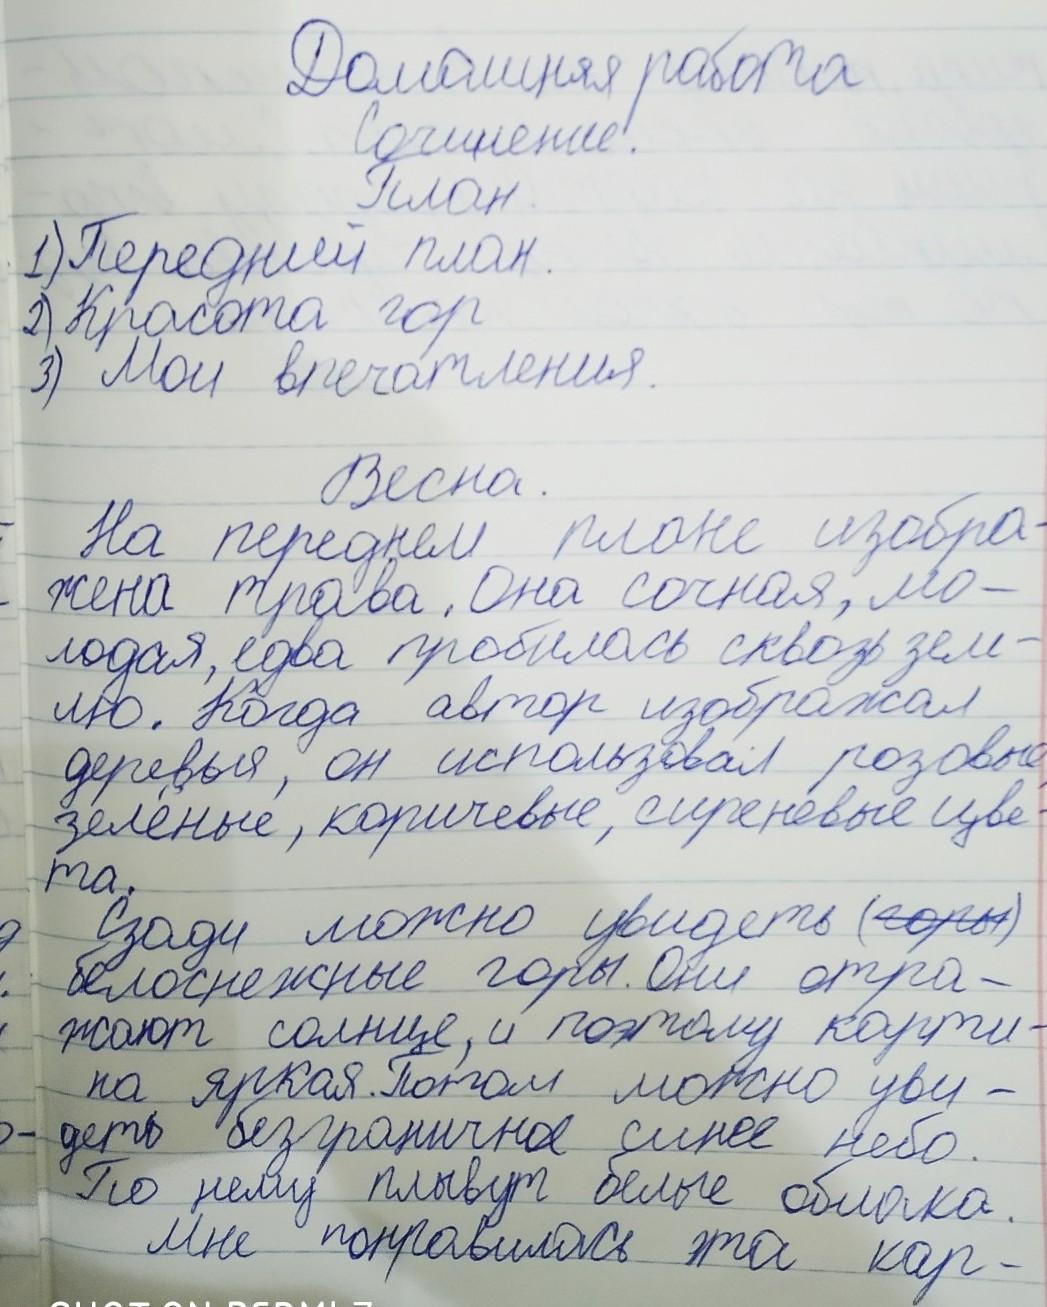 Домашняя работа
Сочинение.
План.
1) Передний план.
2) Красота гор
3) Мои впечатления.
Весна.
На переднем плане изобра-
жена трава. Она сочная, мо-
лодая, едва пробилась сквозь зем-
лю. Когда автор изображал
деревья, он использовал розовые,
зелёные, коричневые, сиреневые цве-
та.
Сзади можно увидеть (горы)
белоснежные горы. Они отра-
жают солнце, и поэтому карти-
на яркая. Потом можно уви-
деть безграничное синее небо.
По нему плывут белые облака.
Мне понравилась эта кар-